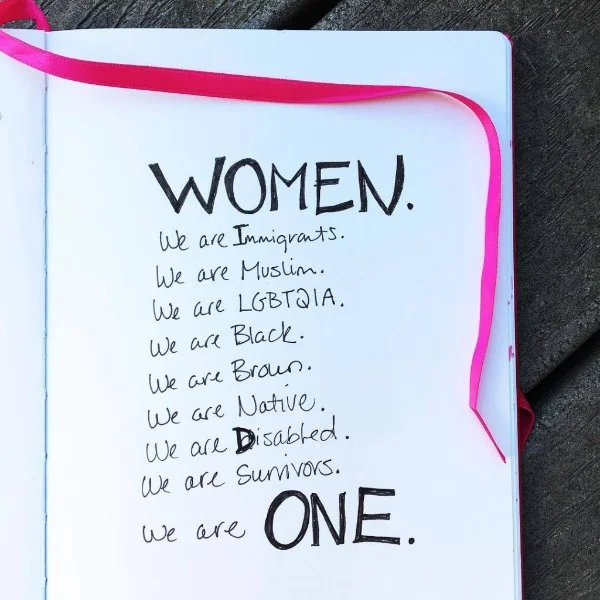 WOMEN.
We are Immigrants.
We are Muslim.
We are LGBTQIA.
We are Black.
We are Brown.
We are Native.
We are Disabled.
We are Survivors.
We are ONE.